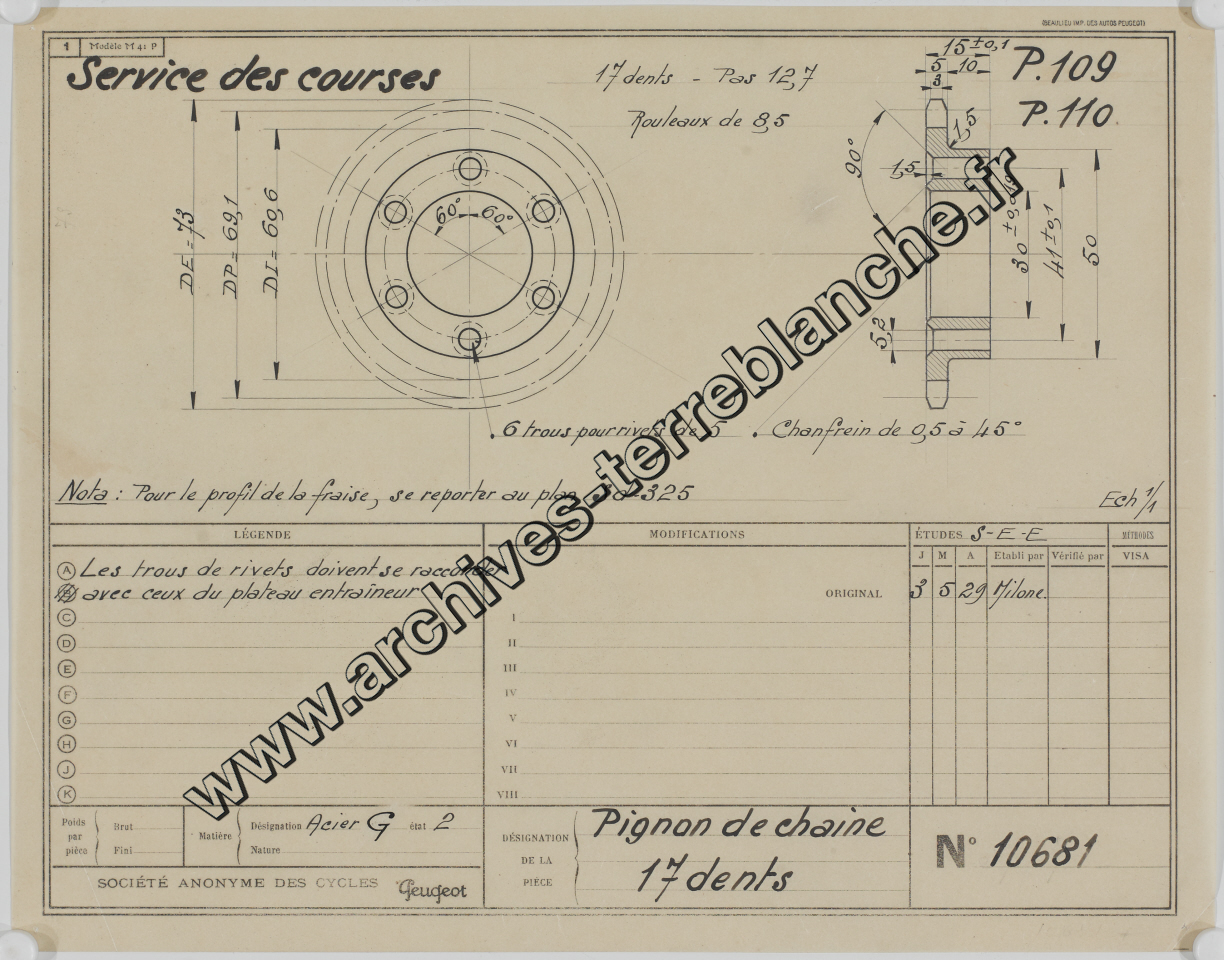 (BEAULIEU IMP. DES AUTOS PEUGEOT)
1 Modèle M 41 P
Service des courses
17 dents - Pas 12,7
Rouleaux de 8,5
P.109
P.110
15 ±0,1
5 10
3
1,5
1,5
90°
60° 60°
DE = 73
DP = 69,1
DI = 60,6
30
41 ±0,1
50
5,2
6 trous pour rivets de 5
Chanfrein de 0,5 à 45°
Nota : Pour le profil de la fraise, se reporter au plan 325
Ech 1/1
LÉGENDE
MODIFICATIONS
ÉTUDES S-E-E
MÉTHODES
J M A Etabli par Vérifié par VISA
A Les trous de rivets doivent se raccorder
B avec ceux du plateau entraîneur
ORIGINAL 3 5 29 Milone
C
D
E
F
G
H
J
K
I
II
III
IV
V
VI
VII
VIII
Poids par pièce
Brut
Fini
Matière
Désignation Acier G état 2
Nature
SOCIÉTÉ ANONYME DES CYCLES Peugeot
DÉSIGNATION
DE LA
PIÈCE
Pignon de chaine
17 dents
N° 10681
www.archives-terreblanche.fr